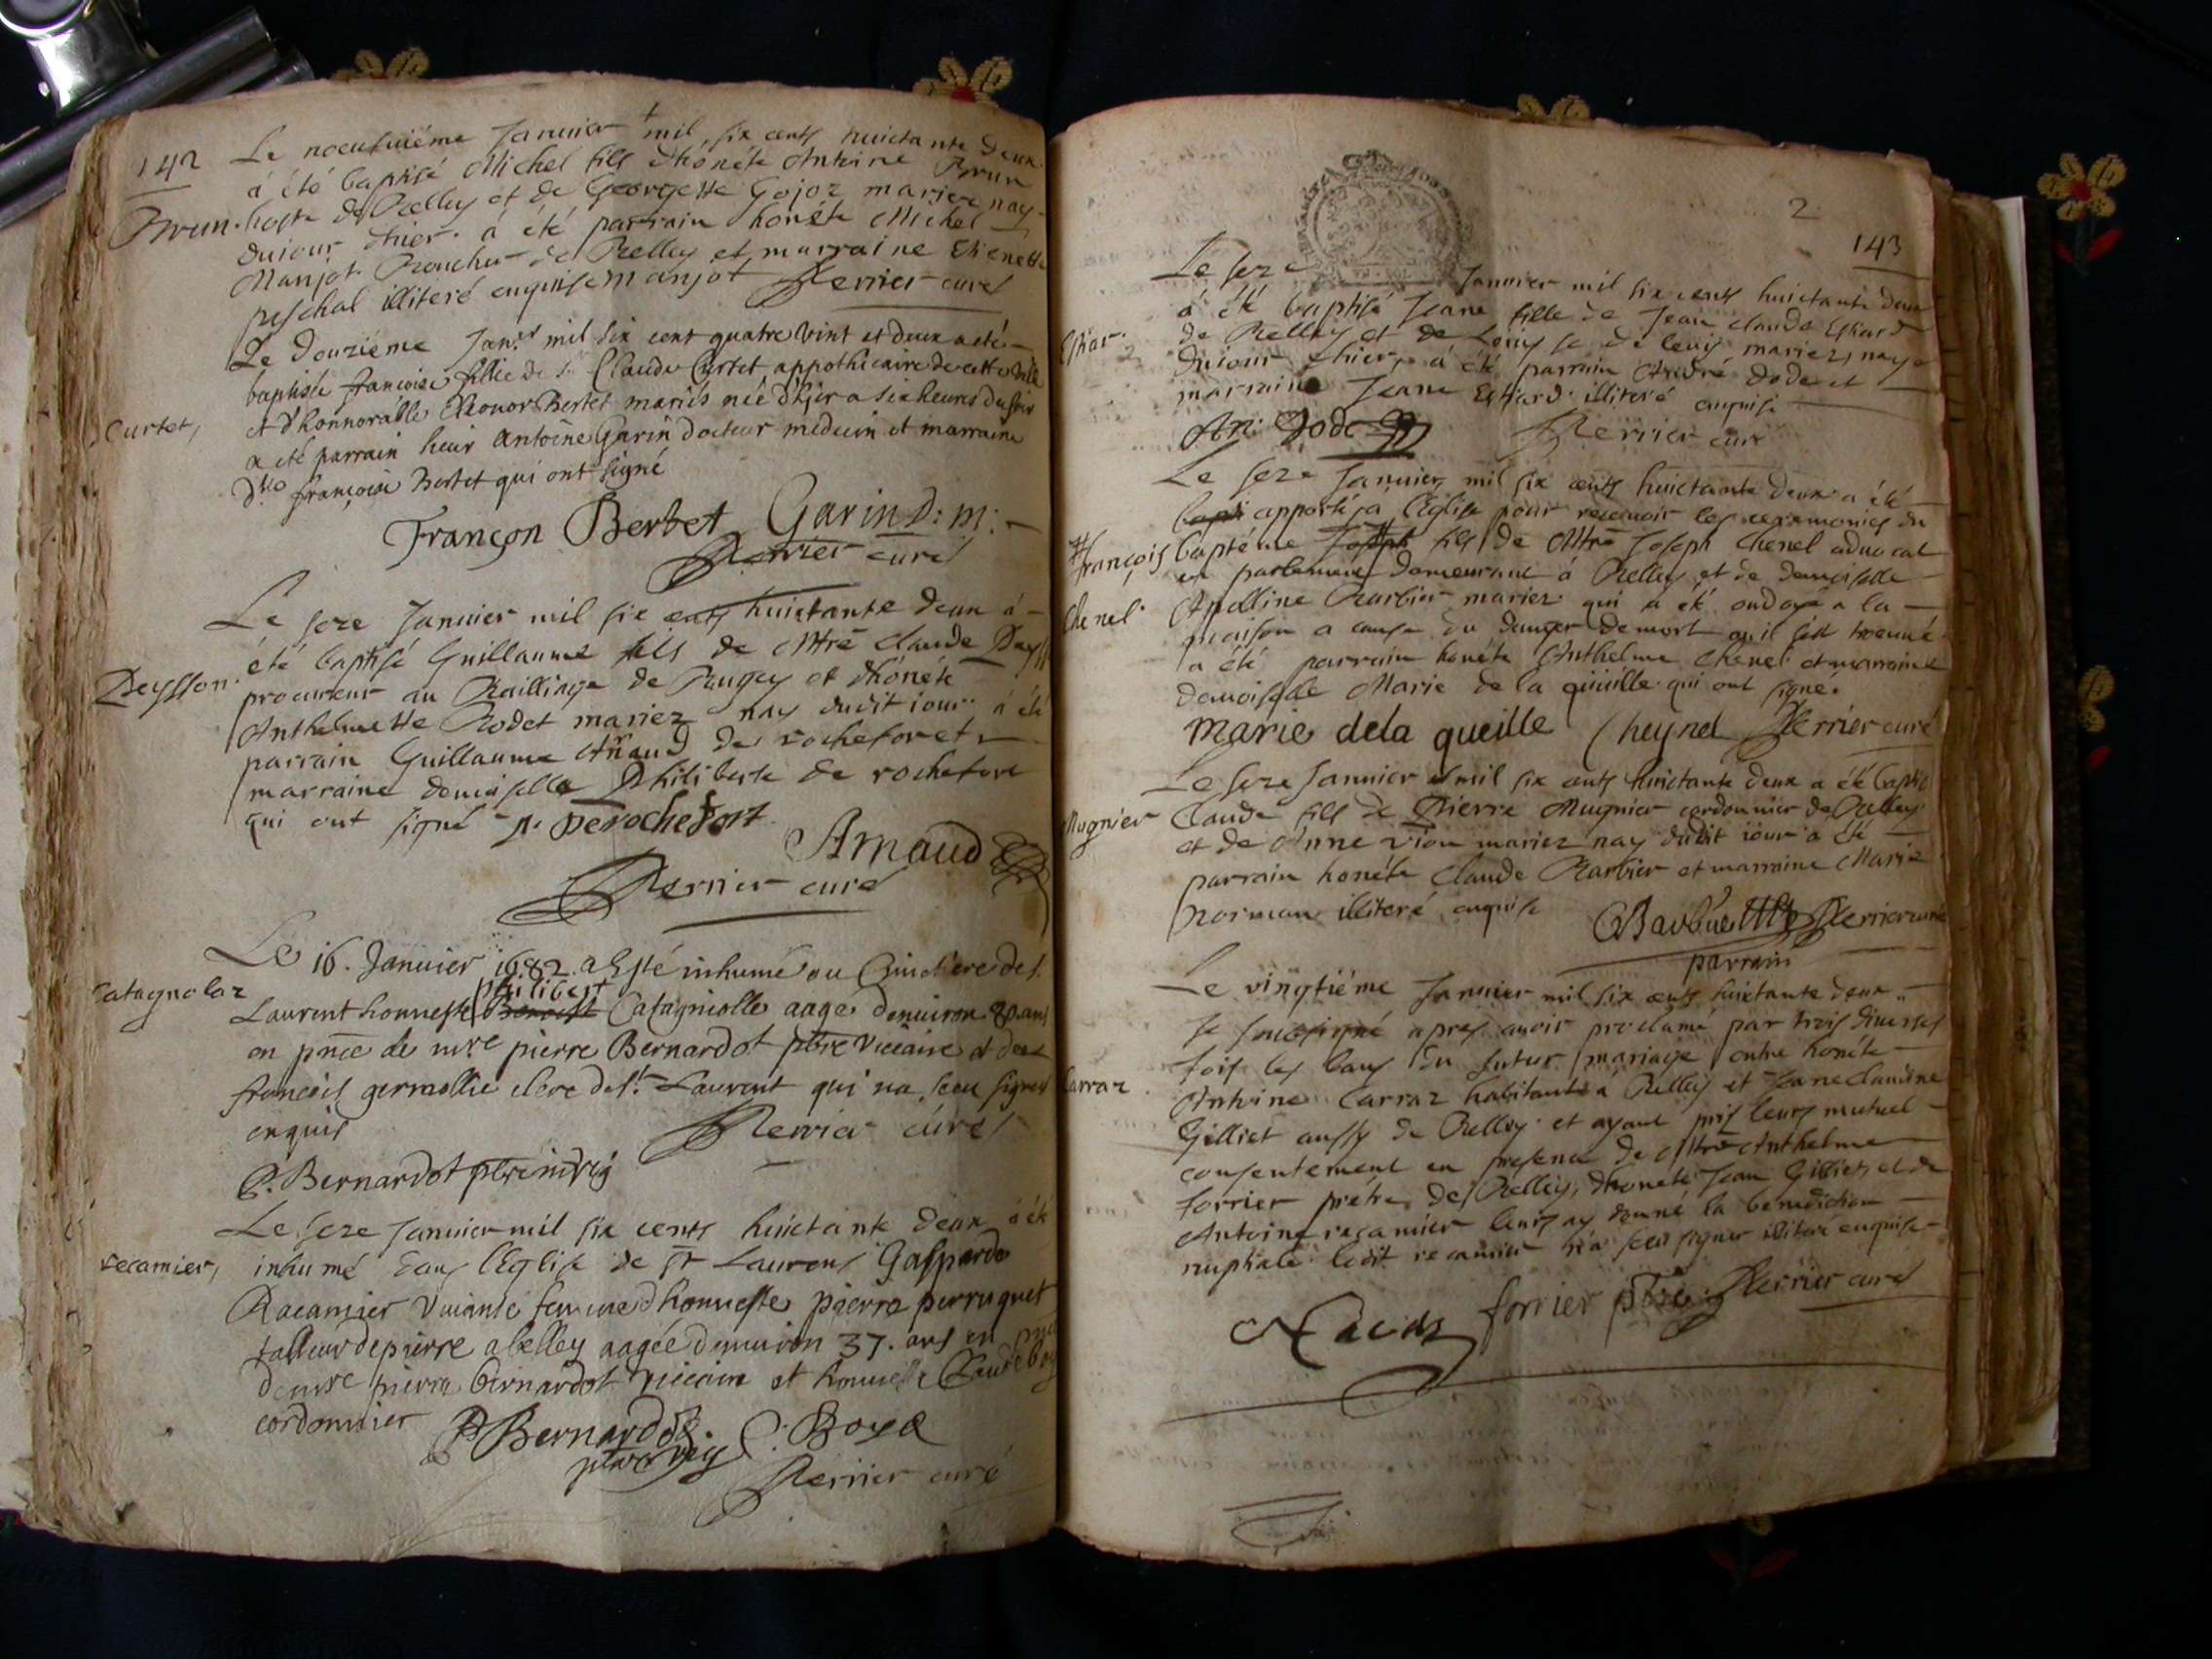 142
Le noeufuiéme Januier mil six cents huictante deux
á été baptisé Michel fils dhónéte Antoine Brun
Brun. hoste de Belley et de Georgette Gojoz mariez nay
dujour dhier. á été parrain honéte Michel
Manjot Boucher de Belley et marraine Etienette
peschal illiteré enquise Manjot Perrier curé
Le Douziéme Janr mil six cent quatre vint et deux a eté
baptisée françoise fillie de Sr Claude Curtet appothicaire de cette ville
Curtet, et d'honnorable Eleonor Bertet mariés née d'hjer a six heures du soir
a eté parrain heur Antoine Garin docteur médecin et marraine
Dlle françoise Bertet qui ont signé
Françon Berbet Garin D: m:
Perrier curé
Le seze Januier mil six cents huictante deux á
été baptisé Guillaume fils de Mtre Claude Deyss
Deysson. procureur au Bailliage de Bugey et dhónéte
Anthelmette Bodet mariez nay dudit iour á été
parrain Guillaume Arnaud de rochefort
marraine demoiselle Philiberte de rochefort
qui ont signé p. Derochefort
Arnaud
Perrier curé
Le 16. Januier 1682. a Esté inhumé au Cimetiere de St
philibert
Catagnolaz Laurent honneste Benoist Catagniolle aagé denuiron 80. ans
en pnce de mre pierre Bernardot ptre viccaire et de
françois germollie clerc de St Laurent qui na sceu signer
enquis Perrier curé
P. Bernardot ptre indig
Le seze Januier mil six cents huictante deux á été
recamier, inhumé dans l'Eglise de St Laurens Gasparde
Racamier viuante femme dhonneste pierre perruquet
tailleur de pierre a belley aagée denuiron 37. ans en pnce
de mre pierre bernardot viccaire et honneste Claude boy
cordonnier P Bernardot C. Boye
ptre vic
Perrier curé
2
143
Le seze Januier mil six cents huictante deux
á été baptisé Jeane fille de Jean Claude Estiard
de Belley et de Louise de leuis mariez, nay
dujour dhier, á été parrain André dode et
marraine Jeane Estiard illiteré enquise
An: Dode Perrier curé
Le seze Januier mil six cents huictante deux a été
bapti apporté a l'Eglise pour receuoir les ceremonies du
françois baptéme Joseph fils de Mtre Joseph Chenel aduocat
en parlement demeurant á Belley et de demoiselle
Chenel. Apolline Barbier mariez. qui a été ondoyé a la
maison a cause du danger de mort ou il sest troeuué
a été parrain honéte Anthelme Chenel et marraine
demoiselle Marie de la queuille qui ont signé.
marie dela queille Cheynel Perrier curé
Le seze Januier mil six cents huictante deux a été baptisé
Mugnier Claude fils de Pierre Mugnier cordonnier de Belley
et de Anne Viou mariez nay dudit iour a été
parrain honéte Claude Barbier et marraine Marie
Norman illiteré enquise Perrier curé
parrain
Le vingtiéme Januier mil six cents huictante deux
Je soucsigné apres auoir proclamé par trois diuerses
fois les bans du futur mariage entre honéte
Carraz Antoine Carraz habitant á Belley et Jeane Claudine
Gilliet aussy de Belley et ayant pris leurs mutuel
consentement en presence de Mtre Anthelme
forrier prétre de Belley, dhonéte Jean Gilliet, et de
Antoine recamier leurs ay donné la benediction
nuptiale ledit recamier n'a sceu signer illiteré enquise
forrier ptre Perrier curé